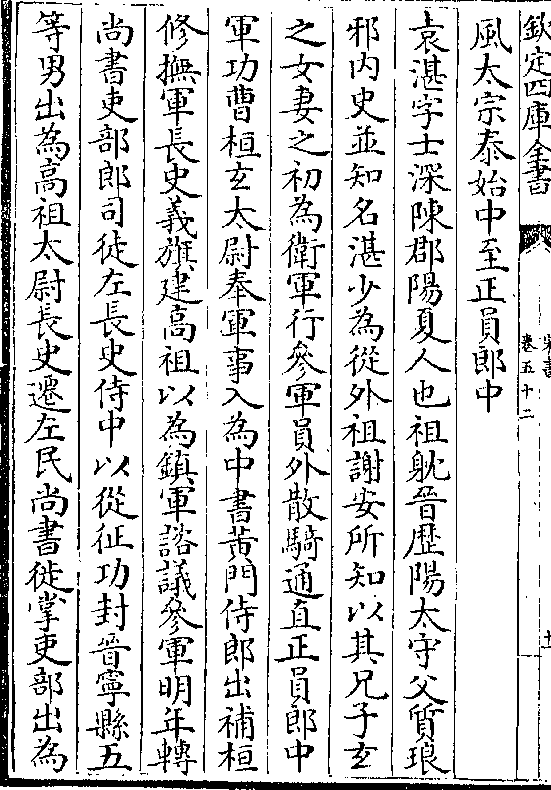 欽定四庫全書
宋書
卷五十二
風太宗泰始中至正員郎中
袁湛字士深陳郡陽夏人也祖躭晉歴陽太守父質琅
邪内史並知名湛少為從外祖謝安所知以其兄子玄
之女妻之初為衛軍行參軍員外散騎通直正員郎中
軍功曹桓玄太尉奉軍事入為中書黄門侍郎出補桓
修撫軍長史義旗建高祖以為鎮軍諮議參軍明年轉
尚書吏部郎司徒左長史侍中以從征功封晉寧縣五
等男出為高祖太尉長史遷左民尚書徙掌吏部出為